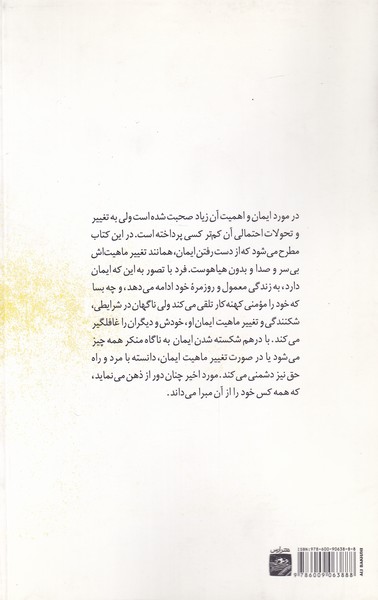 در مورد ایمان و اهمیت آن زیاد صحبت شده است ولی به تغییر
و تحولات احتمالی آن کم‌تر کسی پرداخته است. در این کتاب
مطرح می‌شود که از دست رفتن ایمان، همانند تغییر ماهیت‌اش
بی‌سر و صدا و بدون هیاهوست. فرد با تصور به این که ایمان
دارد، به زندگی معمول و روزمرهٔ خود ادامه می‌دهد، و چه بسا
که خود را مؤمنی کهنه‌کار تلقی می‌کند ولی ناگهان در شرایطی،
شکنندگی و تغییر ماهیت ایمان او، خودش و دیگران را غافلگیر
می‌کند. با درهم شکسته شدن ایمان به ناگاه منکر همه چیز
می‌شود یا در صورت تغییر ماهیت ایمان، دانسته با مرد و راه
حق نیز دشمنی می‌کند. مورد اخیر چنان دور از ذهن می‌نماید،
که همه کس خود را از آن مبرا می‌داند.
ISBN: 978-600-90638-8-8
9 786009 063888